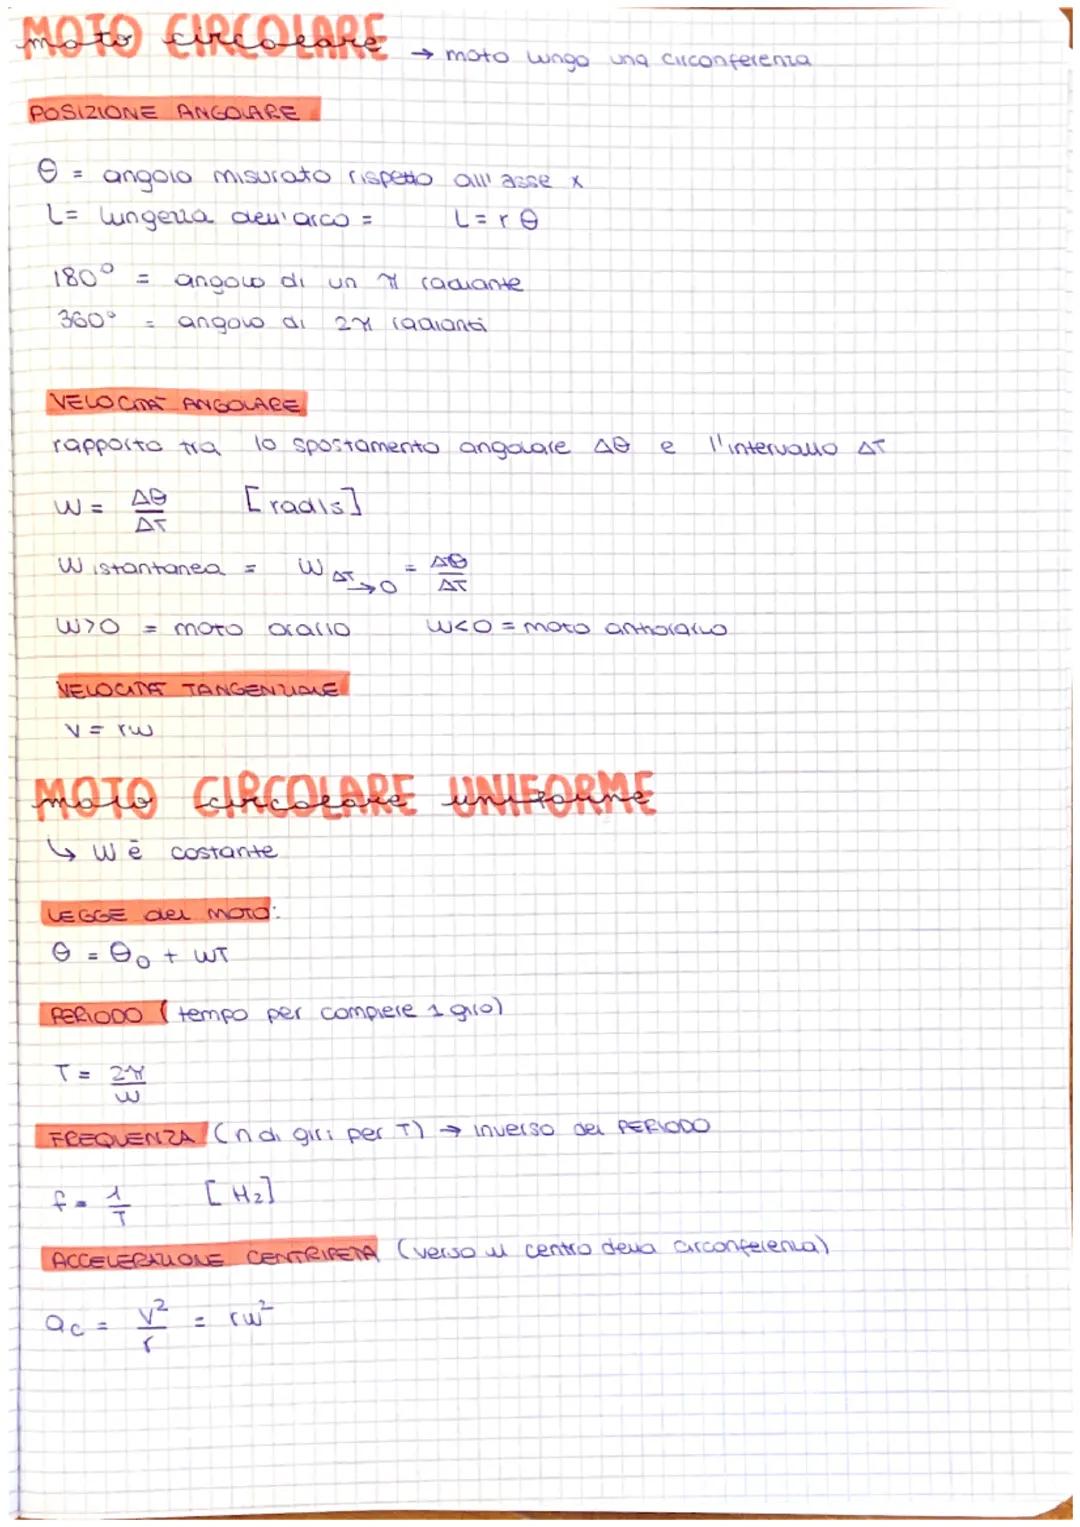 MOTO CIRCOLARE → moto lungo una circonferenza
POSIZIONE ANGOLARE
θ = angolo misurato rispetto all'asse x
L = lungezza dell'arco = L = r θ
180° = angolo di un π radiante
360° = angolo di 2π radianti
VELOCITÀ ANGOLARE
rapporto tra lo spostamento angolare Δθ e l'intervallo ΔT
W = Δθ/ΔT [rad/s]
W istantanea = W ΔT→0 = Δθ/ΔT
W>0 = moto orario W<0 = moto antiorario
VELOCITÀ TANGENZIALE
V = rw
MOTO CIRCOLARE UNIFORME
↳ W è costante
LEGGE del MOTO:
θ = θ₀ + WT
PERIODO (tempo per compiere 1 giro)
T = 2π/W
FREQUENZA (n di giri per T) → inverso del PERIODO
f = 1/T [Hz]
ACCELERAZIONE CENTRIPETA (verso il centro della circonferenza)
ac = V²/r = rw²